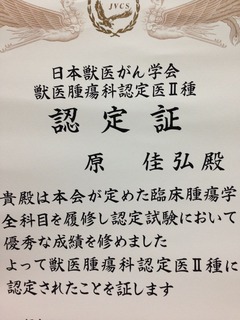 JVCS
日本獣医がん学会
獣医腫瘍科認定医Ⅱ種
認定証
原 佳弘殿
貴殿は本会が定めた臨床腫瘍学
全科目を履修し認定試験において
優秀な成績を修めました
よって獣医腫瘍科認定医Ⅱ種に
認定されたことを証します